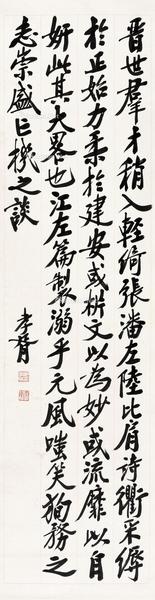 晋世羣才稍入輕綺張潘左陸比肩詩衢采縟
於正始力柔於建安或析文以為妙或流靡以自
妍此其大畧也江左篇製溺乎元風嗤笑徇務之
志崇盛亡機之談
李瑞清